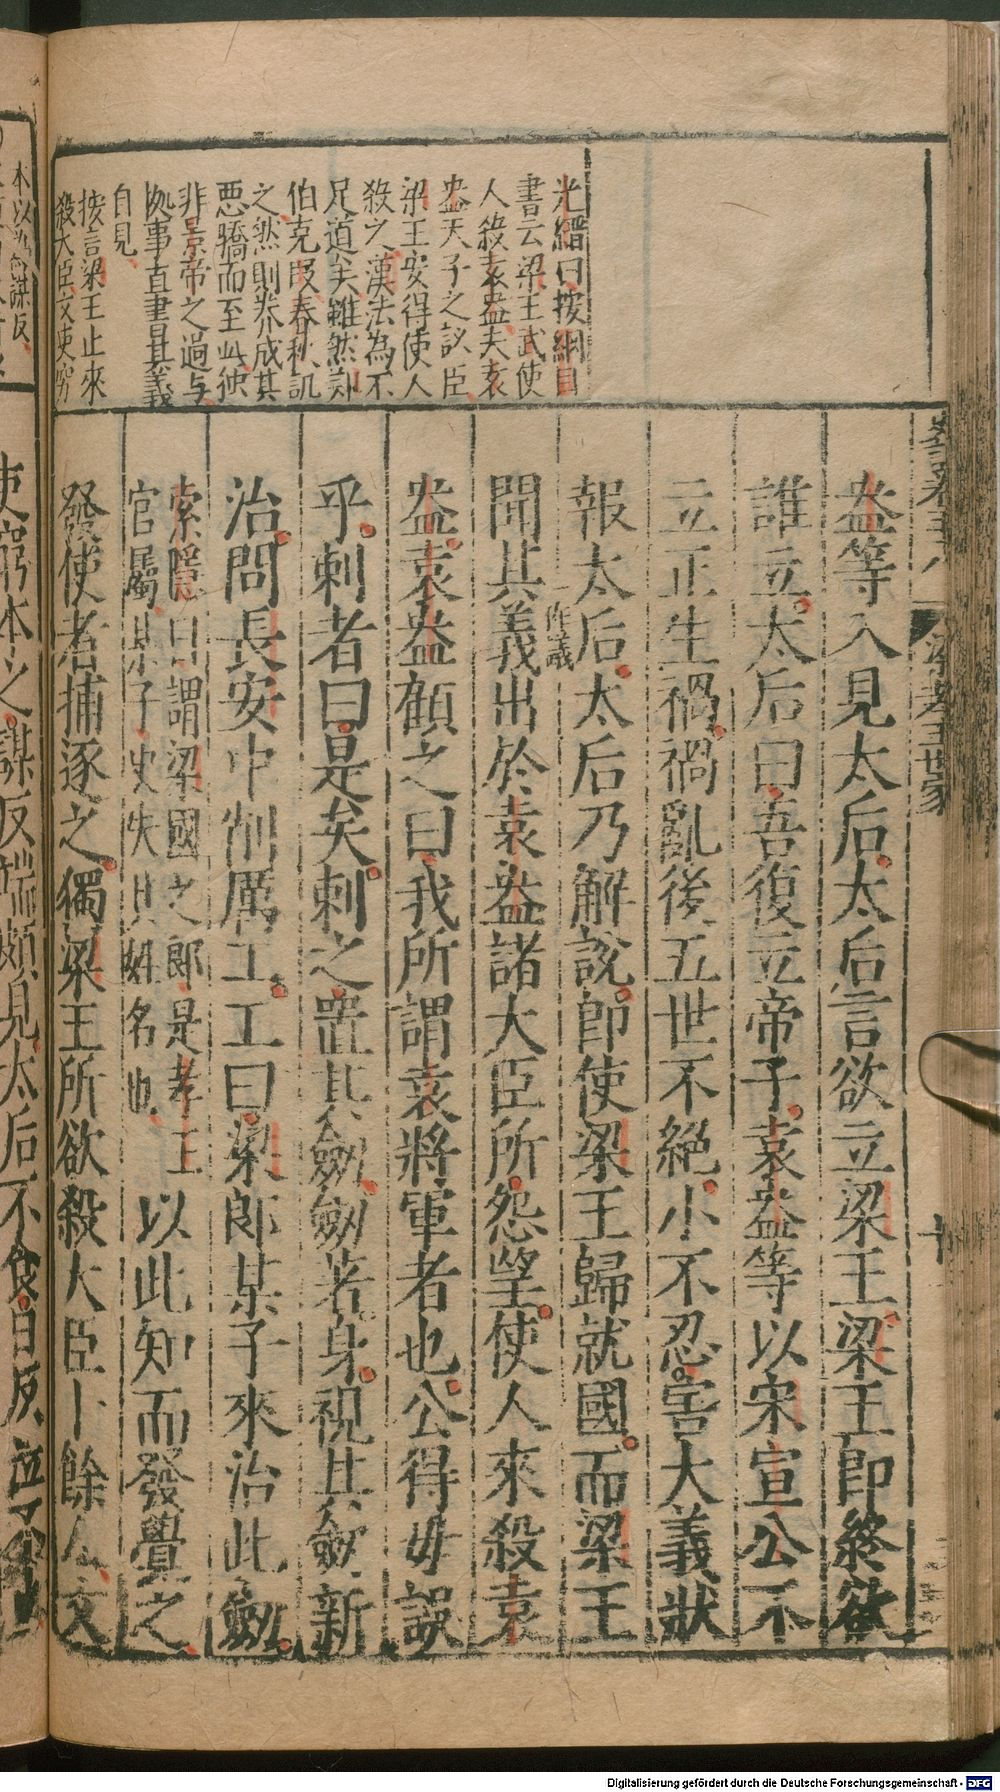 光縉曰按綱目
書云梁王武使
人殺袁盎夫袁
盎天子之議臣
梁王安得使人
殺之漢法為不
足道矣雖然鄭
伯克段春秋譏
之然則養成其
惡驕而至此彼
非景帝之過與
故事直書其義
自見
按言梁王止來
殺大臣文吏窮
本以為謀反
盎等入見太后太后言欲立梁王梁王即終欲
誰立太后曰吾復立帝子袁盎等以宋宣公不
立正生禍禍亂後五世不絕小不忍害大義狀
報太后太后乃解說即使梁王歸就國而梁王
聞其義作議出於袁盎諸大臣所怨望使人來殺袁
盎袁盎顧之曰我所謂袁將軍者也公得毋誤
乎刺者曰是矣刺之置其劒劒著身視其劒新
治問長安中削厲工工曰梁郎某子來治此劒
索隱曰謂梁國之郎是孝王
官屬某子史失其姓名也以此知而發覺之
發使者捕逐之獨梁王所欲殺大臣十餘人文
吏窮本之謀反端頗見太后不食日夜泣不止
梁孝王世家
十
Digitalisierung gefördert durch die Deutsche Forschungsgemeinschaft - DFG